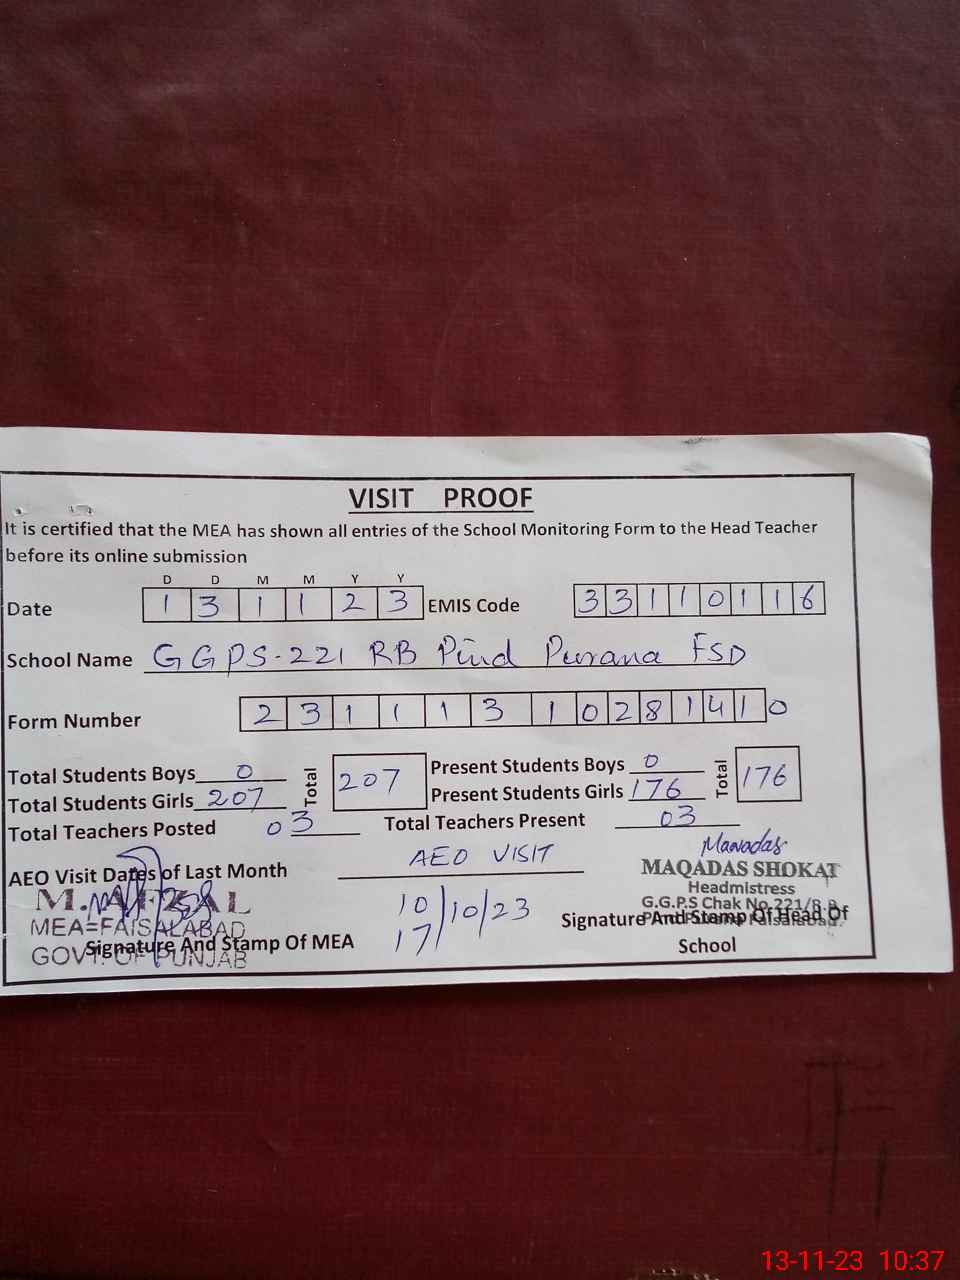 VISIT PROOF
It is certified that the MEA has shown all entries of the School Monitoring Form to the Head Teacher
before its online submission
D D M M Y Y
Date 1 3 1 1 2 3 EMIS Code 3 3 1 1 0 1 1 6
School Name GGPS-221 RB Pind Purana FSD
Form Number 2 3 1 1 1 3 1 0 2 8 1 4 1 0
Total Students Boys 0 Total 207 Present Students Boys 0 Total 176
Total Students Girls 207 Present Students Girls 176
Total Teachers Posted 03 Total Teachers Present 03
AEO Visit Dates of Last Month AEO VISIT
10/10/23
17/
M. AFZAL
MEA=FAISALABAD
GOVT. OF PUNJAB
Signature And Stamp Of MEA
MAQADAS SHOKAT
Headmistress
G.G.P.S Chak No.221/R.B
Faisalabad.
Signature And Stamp Of Head Of
School
13-11-23 10:37